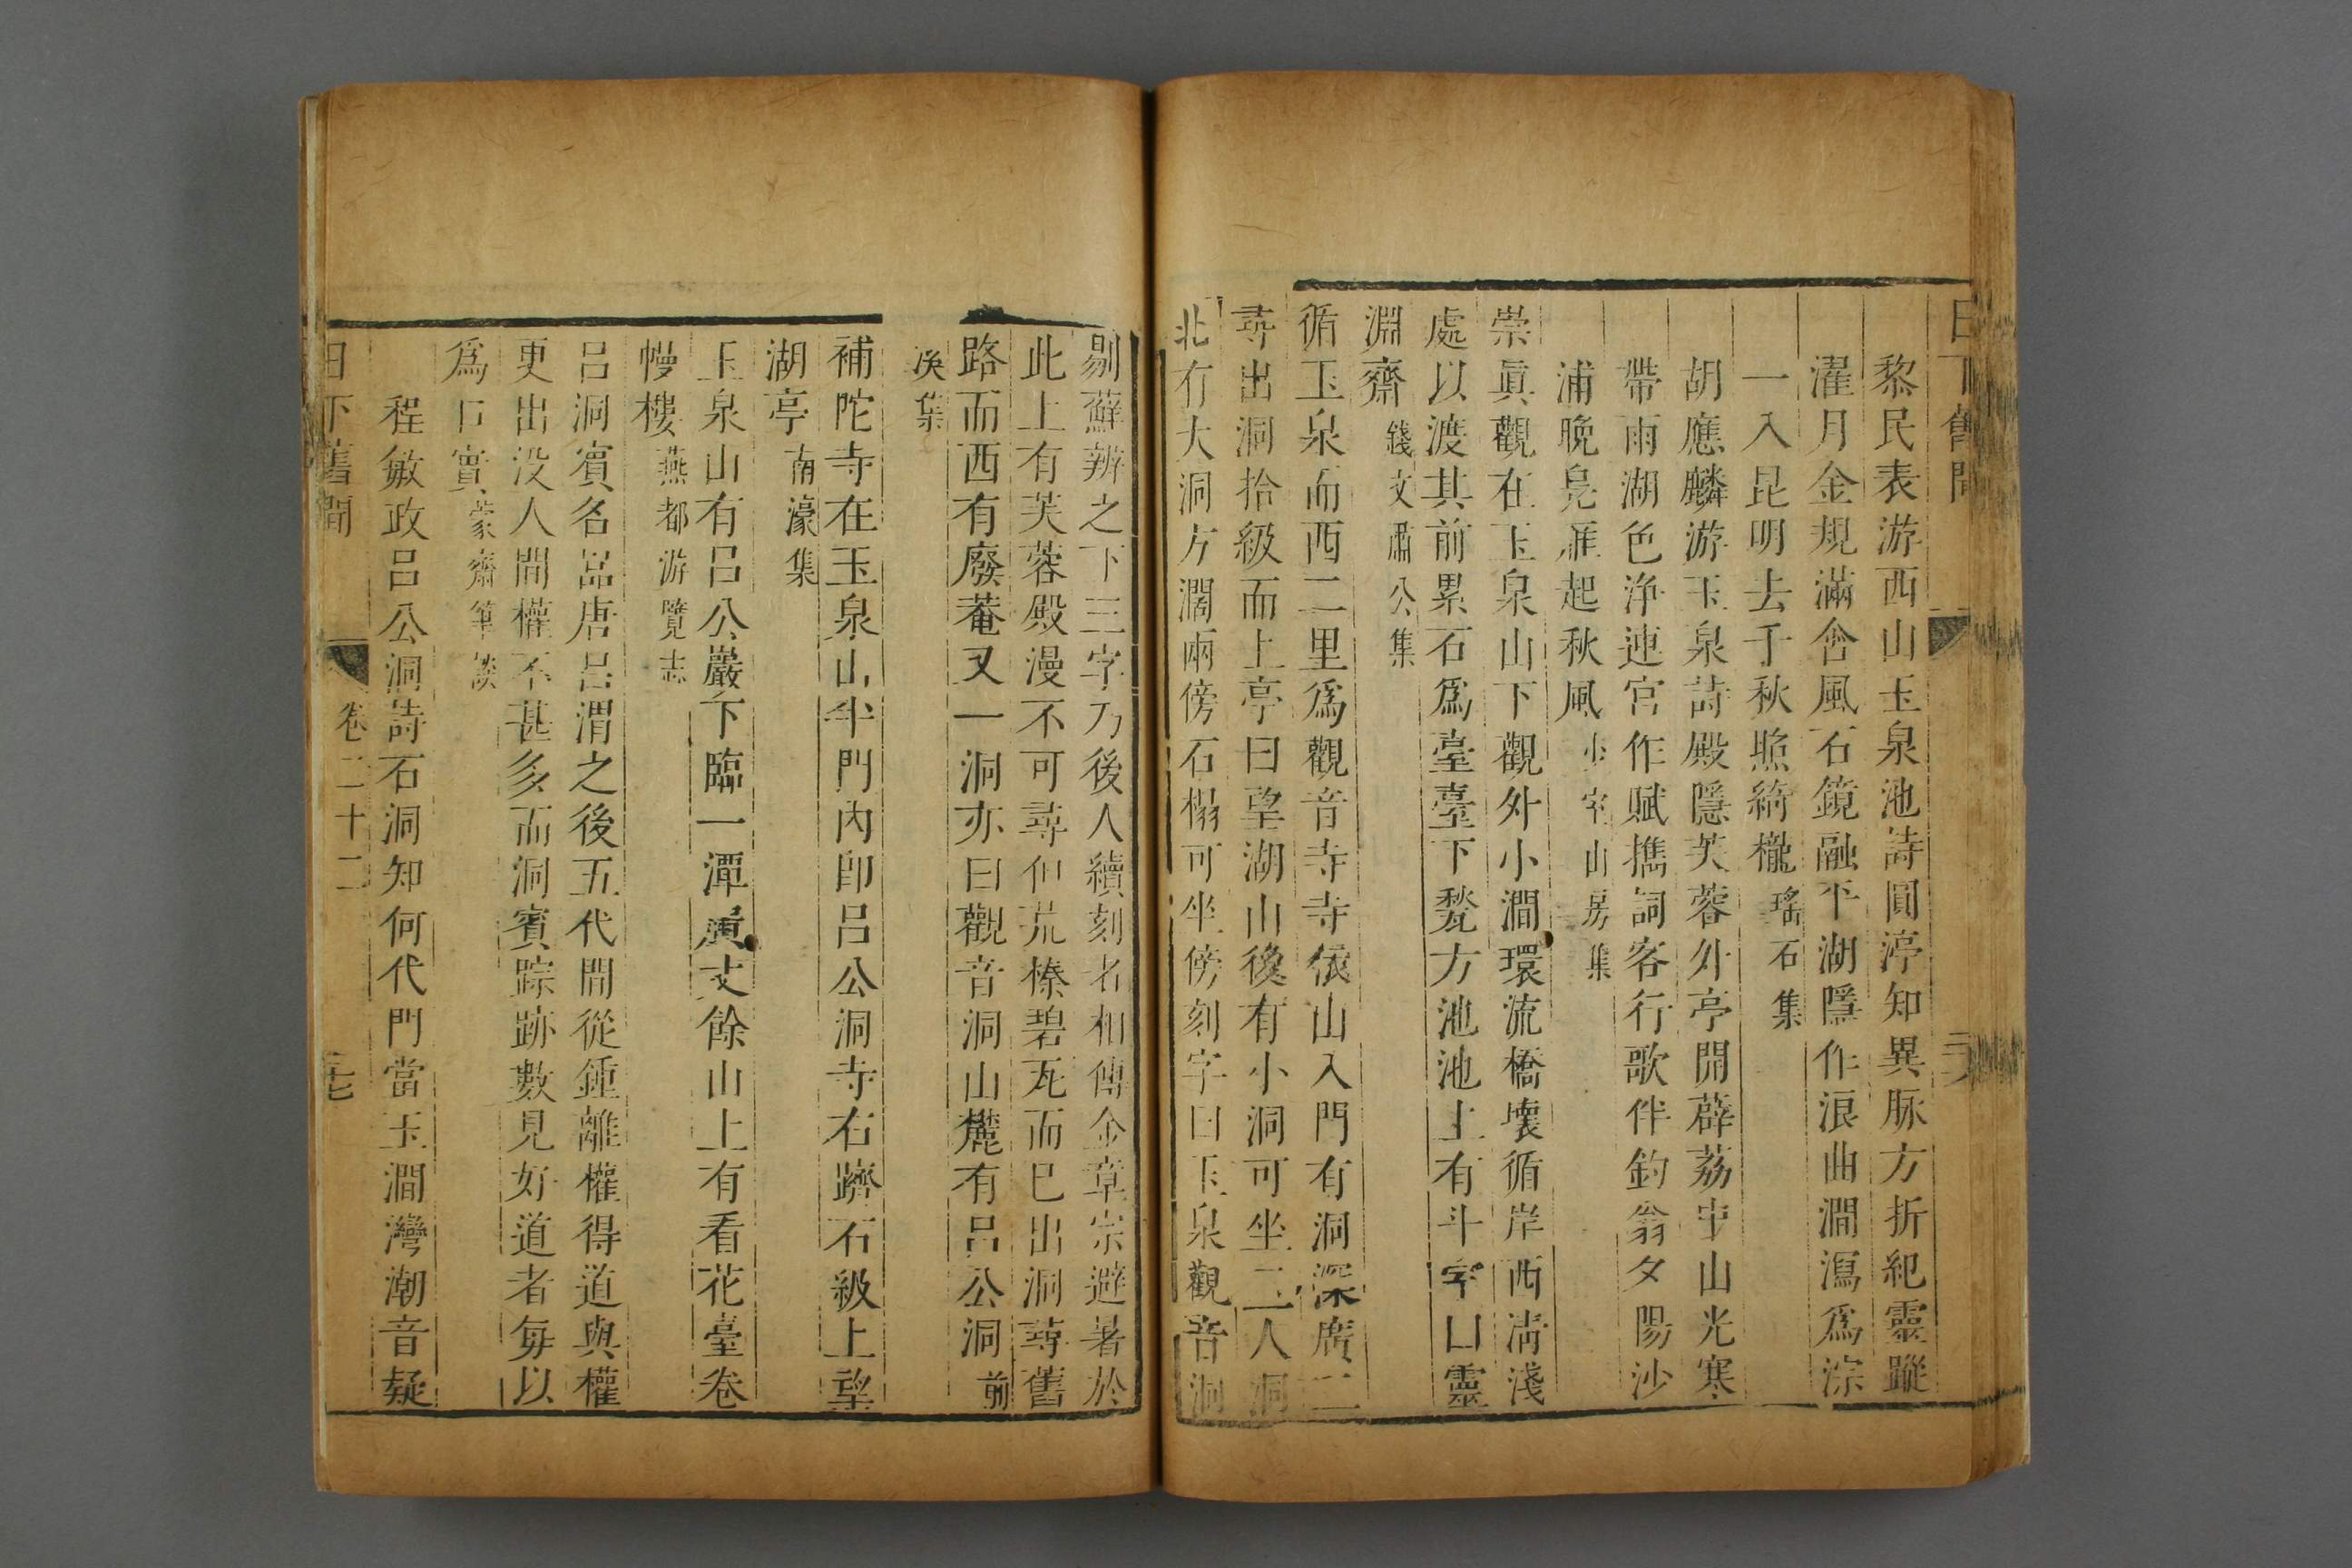 日下舊聞
黎民表游西山玉泉池詩圓渟知異脉方折紀靈蹤
濯月金規滿含風石鏡融平湖隱作浪曲澗瀉爲淙
一入昆明去千秋照綺櫳瑤石集
胡應麟游玉泉詩殿隱芙蓉外亭開薜荔中山光寒
帶雨湖色浄連宮作賦攜詞客行歌伴釣翁夕陽沙
浦晚鳧雁起秋風少室山房集
崇眞觀在玉泉山下觀外小澗環流橋壊循岸西淸淺
處以渡其前累石爲臺臺下甃方池池上有斗字凵靈
淵齋錢文肅公集
循玉泉而西二里爲觀音寺寺依山入門有洞深廣二
尋出洞拾級而上亭曰望湖山後有小洞可坐二人洞
北有大洞方濶兩傍石榻可坐傍刻字曰玉泉觀音洞
剔蘚辨之下三字乃後人續刻者相傳金章宗避暑於
此上有芙蓉殿漫不可尋但荒榛碧瓦而巳出洞尋舊
路而西有廢菴又一洞亦曰觀音洞山麓有呂公洞前
矦集
補陀寺在玉泉山半門內卽呂公洞寺右躋石級上望
湖亭南濠集
玉泉山有呂公巖下臨一潭廣丈餘山上有看花臺卷
幔樓燕都游覽志
呂洞賓名嵒唐呂渭之後五代間從鍾離權得道與權
更出没人間權不甚多而洞賓踪跡數見好道者每以
爲口實蒙齋筆談
程敏政呂公洞詩石洞知何代門當玉澗灣潮音疑
日下舊聞 卷二十二 二七